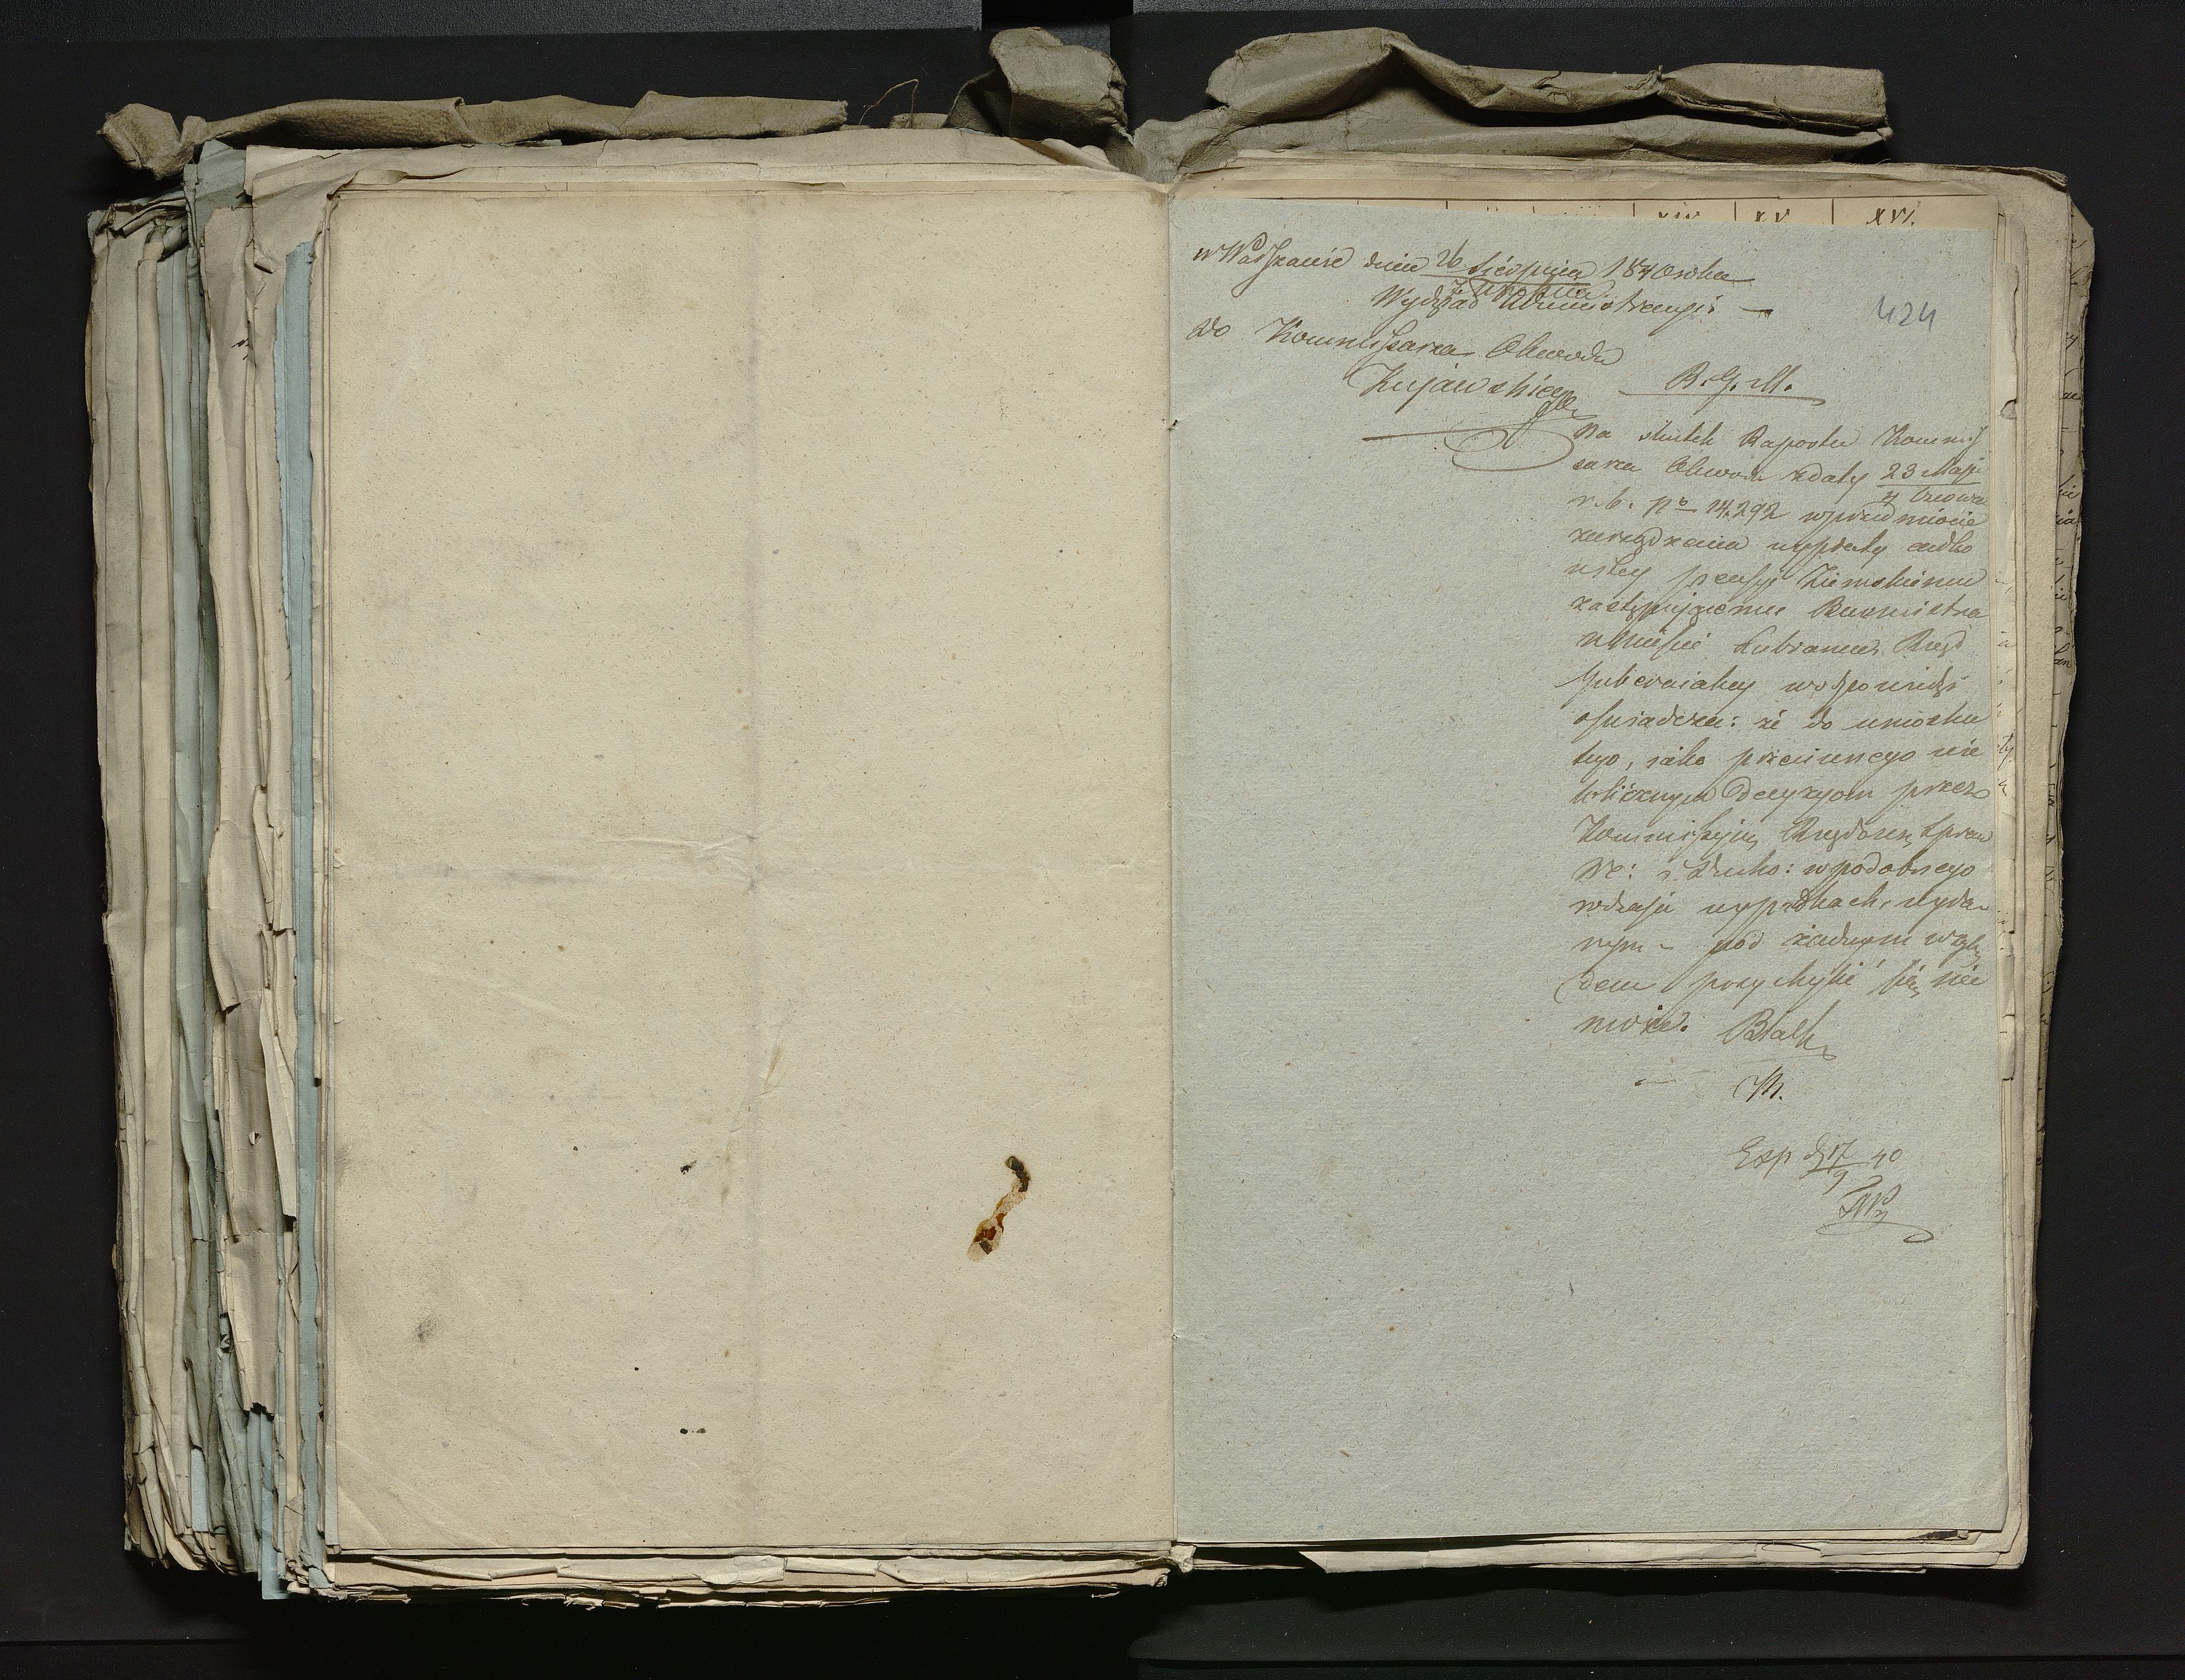 XIV XV XVI.
w Warszawie dnia 26 Sierpnia 1840 roku
7 Września
Wydział Administracyi
424
do Kommissarza Obwodu
Kujawskiego
R. G. M.
Na skutek Raportu Kommis
sarza Obwodu z daty 23 Maja
4 Czerwca
r. b. No 14,292 w przedmiocie
zarządzenia wypłaty całko
witey pensyi Ziemskiemu
zastępującemu Burmistrza
w Mieście Lubrańcu Rząd
Gubernialny w odpowiedzi
oświadcza: że do wniosku
tego, jako przeciwnego nie
licznym decyzyom przez
Kommissyią Rządową Spraw
We: i Ducho: w podobnego
rodzaju wypadkach, wyda-
nym - pod żadnym wzglę
dem przychylić się nie
może.
M.
Exp d 17/9 40